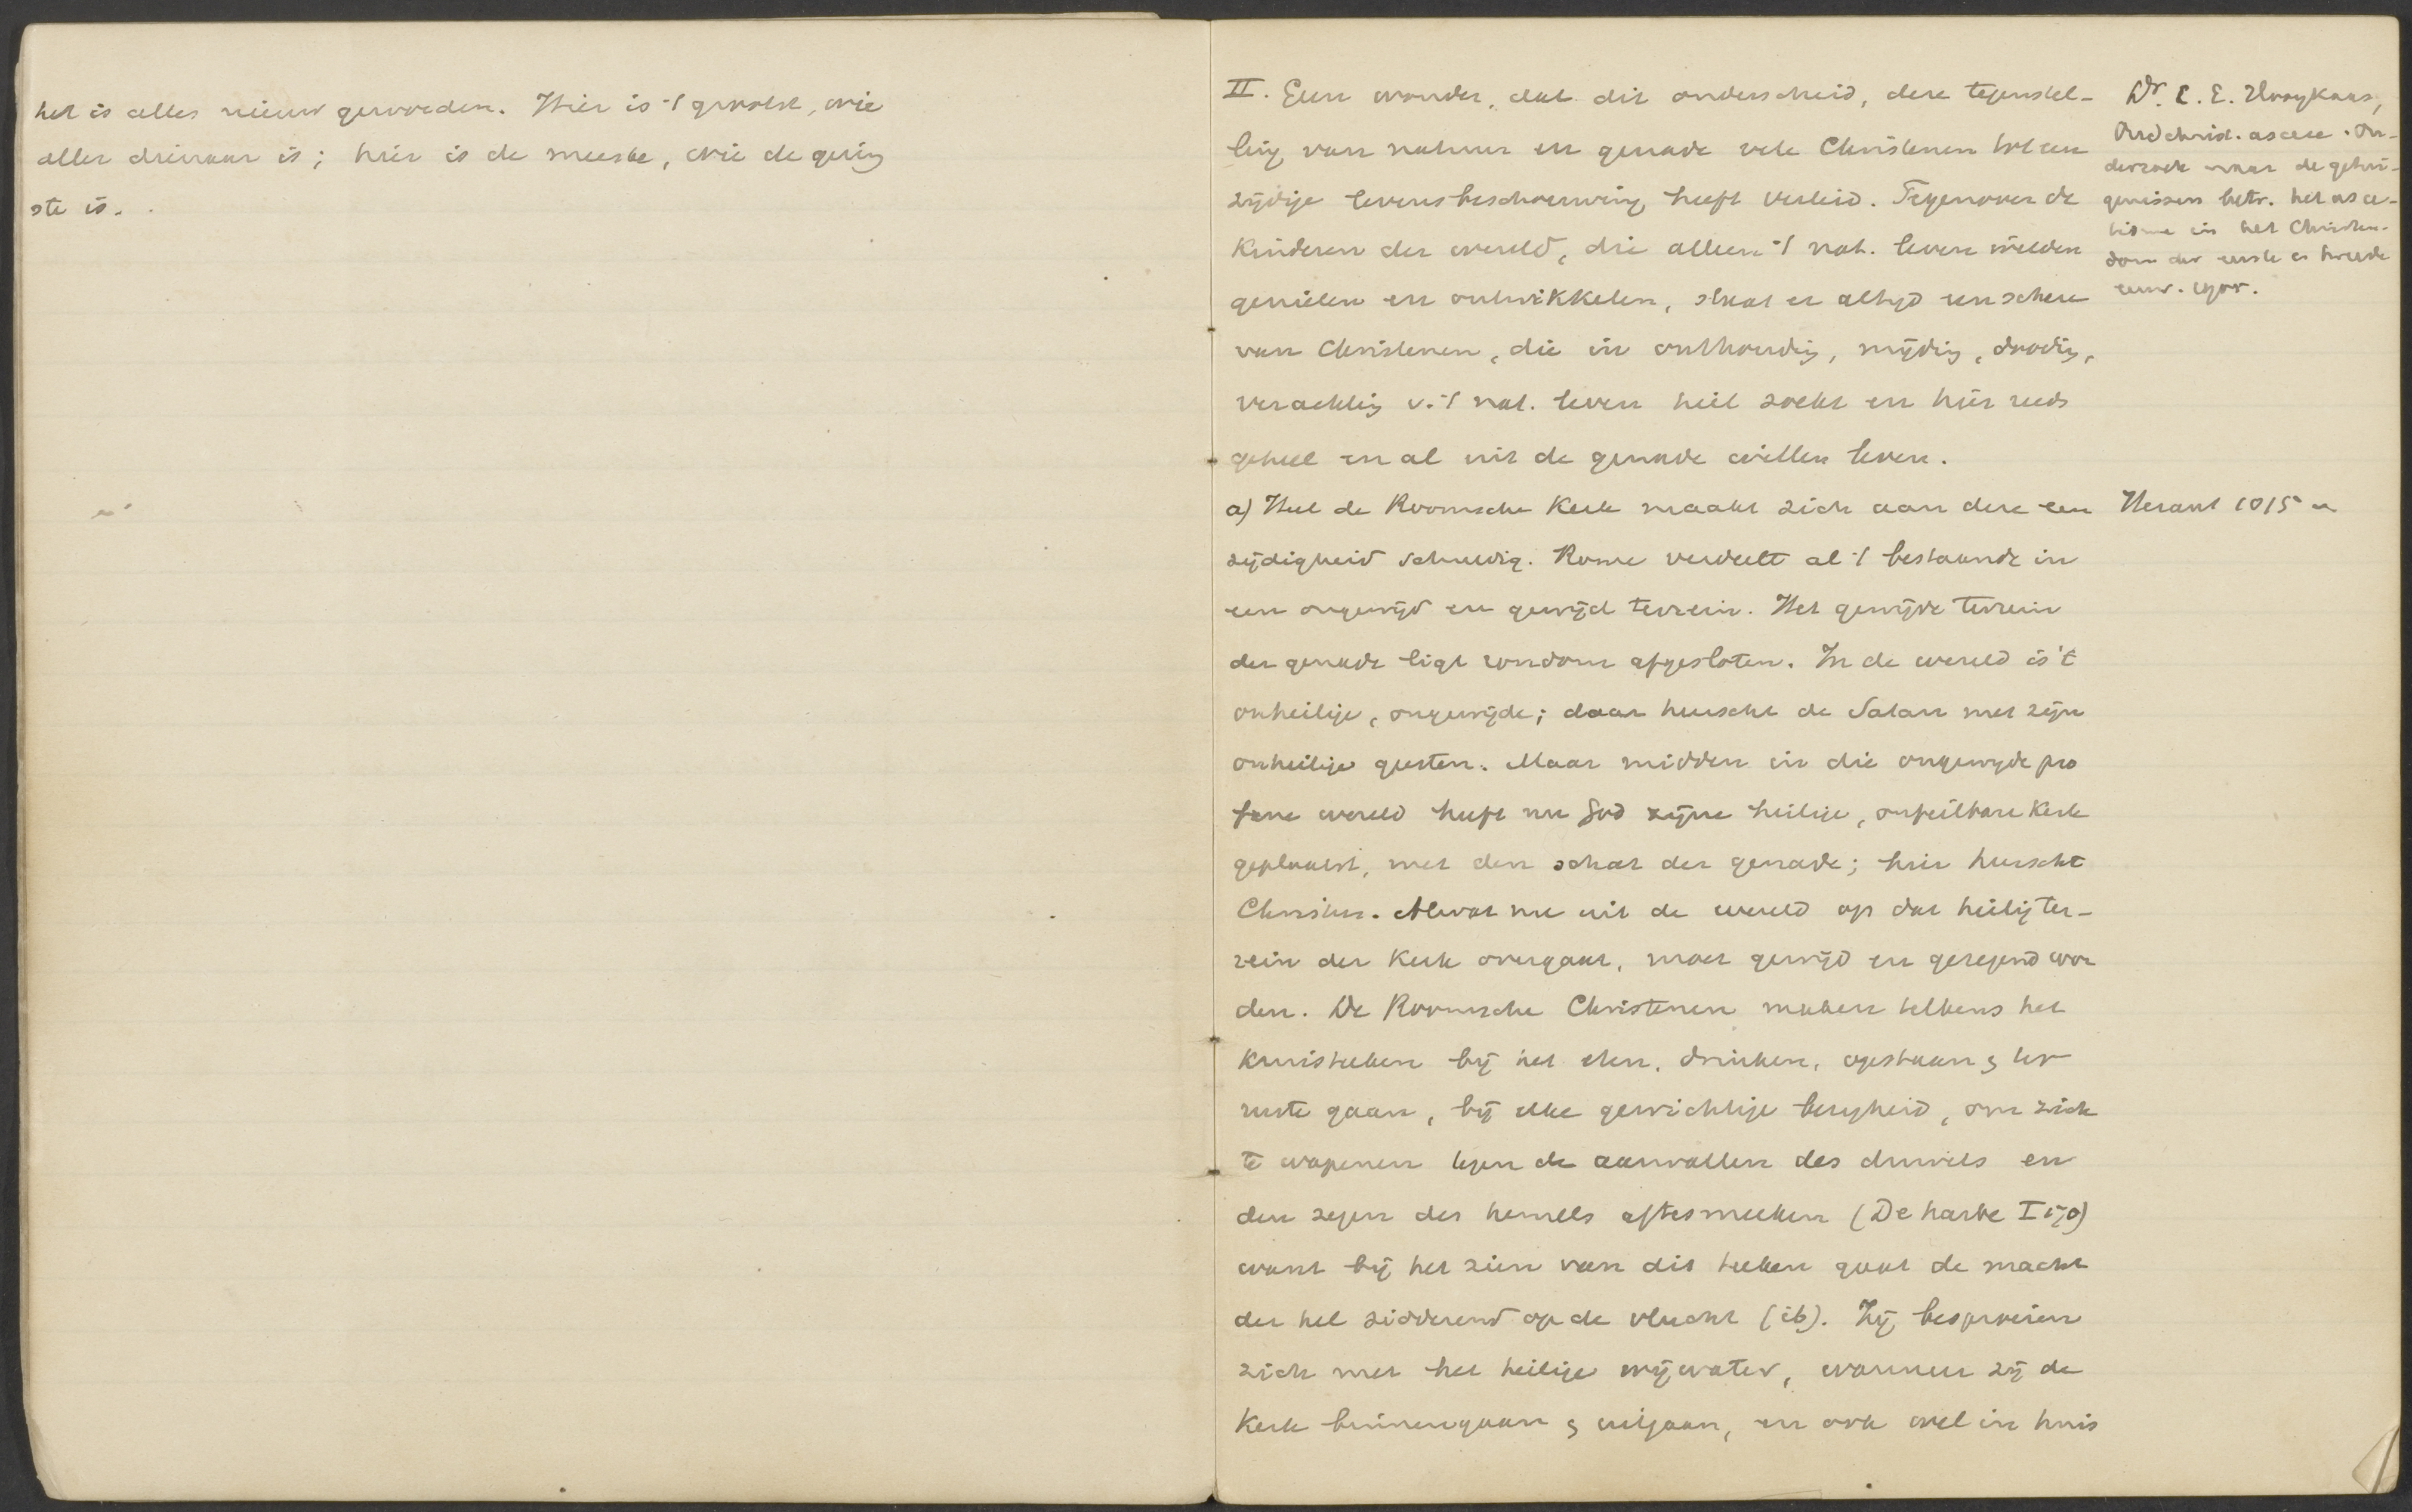 het is alles nieuw geworden. Hier is 't grootst, wie
aller dienaar is; hier is de meeste, wie de gering
ste is.
II. Geen wonder, dat dit onderscheid, deze tegenstel-
ling van natuur en genade vele Christenen tot een
zijdige levensbeschouwing heeft verleid. Tegenover de
kinderen der wereld, die alleen 't nat. leven wilden
genieten en ontwikkelen, staat er altijd een schare
van Christenen, die in onthouding, mijding, dooding,
verachting v. 't nat. leven heil zoekt en hier reeds
geheel en al uit de genade willen leven.
a) Heel de Roomsche Kerk maakt zich aan deze een
zijdigheid schuldig. Rome verdeelt al 't bestaande in
een ongewijd en gewijd terrein. Het gewijde terrein
der genade ligt rondom afgesloten. In de wereld is 't
onheilige, ongewijde; daar heerscht de Satan met zijn
onheilige geesten. Maar midden in die ongewijde pro
fane wereld heeft nu God zijne heilige, onfeilbare Kerk
geplaatst, met den schat der genade; hier heerscht
Christus. Alwat nu uit de wereld op dat heilig ter-
rein der Kerk overgaat, moet gewijd en gezegend wor
den. De Roomsche Christenen maken telkens het
kruisteeken bij het eten, drinken, opstaan & ter
ruste gaan, bij elke gewichtige bezigheid, om zich
te wapenen tegen de aanvallen des duivels en
den zegen des hemels aftesmeeken (Deharbe I 170)
want bij het zien van dit teeken gaat de macht
der hel sidderend op de vlucht (ib). Zij besproeien
zich met het heilige wijwater, wanneer zij de
Kerk binnengaan & uitgaan, en ook wel in huis
Dr. E. E. Hooykaas,
Oudchrist. ascese. On-
derzoek naar de getui-
genissen betr. het asce-
tisme in het Christen-
dom der eerste en tweede
eeuw. 1905.
Heraut 1015